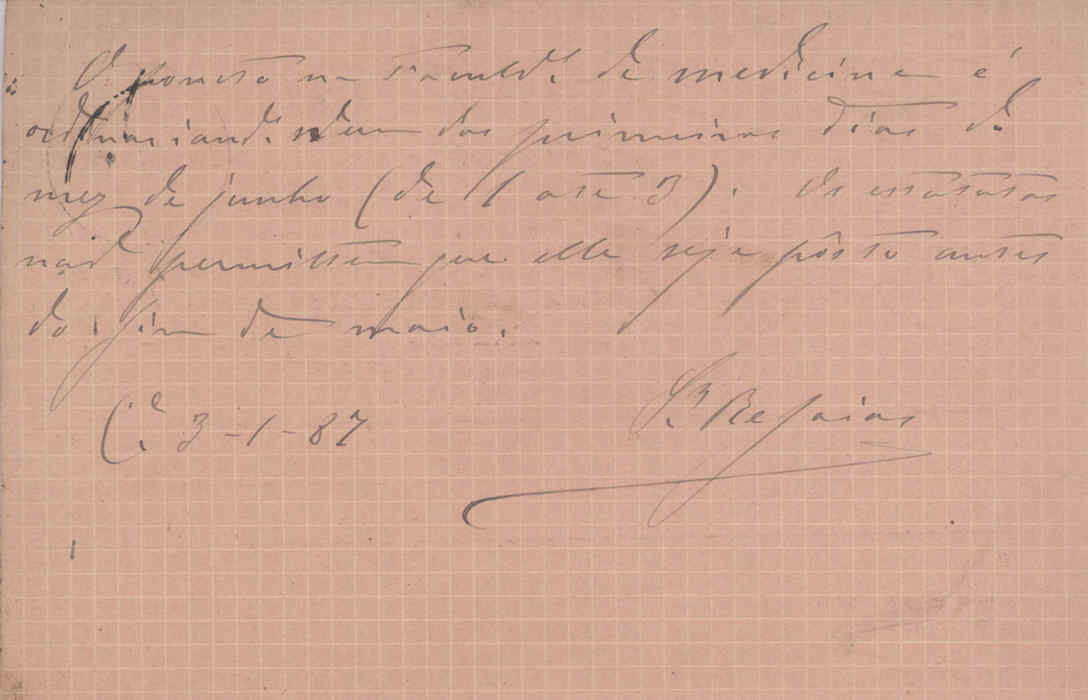 O ponto na Faculd.e de medicina é
ordinariam.te n'um dos primeiros dias do
mez de junho (de 1 até 3). Os estatutos
não permittem que elle seja pôsto antes
do fim de maio.
C.a 3-1-87
Refoios